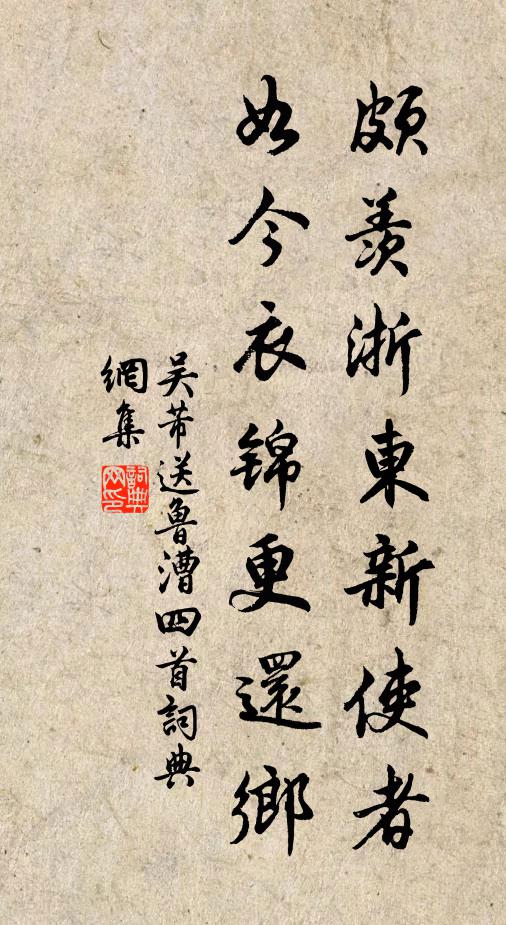 頗羨浙東新使者
如今衣錦更還鄉
吴芾送魯漕四首詞典
網集
詞典
网印